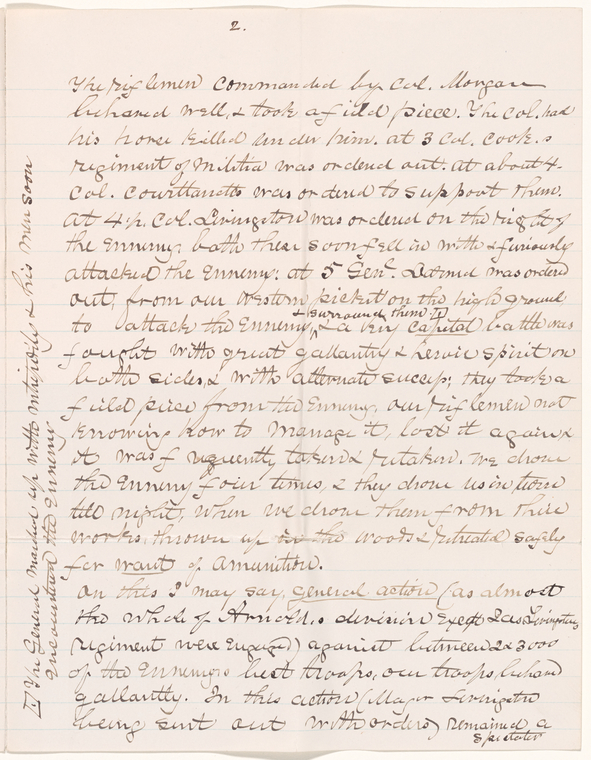 2.
The riflemen commanded by Col. Morgan
behaved well, & took a field piece. The Col. had
his horse killed under him. at 3 Col. Cook,s
regiment of Militia was ordered out. at about 4.
Col. Courtlandts was ordered to support them.
At 4½. Col. Livingston was ordered on the right of
the Ennemy; both these soon fell in with & furiously
attacked the Ennemy: at 5 Genl. Learned was ordered
out, from our western picket on the high ground
to attack the Ennemy, & a very capital battle was
& surround them
fought with great gallantry & heroic spirit on
both sides, & with alternate success; they took a
field piece from the Ennemy, our riflemen not
knowing how to manage it, lost it again &
it was frequently taken & retaken. We drove
the Ennemy four times, & they drove us in turn
till night, when we drove them from their
works, thrown up in the woods & retreated safely
for want of amunition.
On this I may say, general action (as almost
the whole of Arnold,s division Livingstons
regiment were engaged) against between 2 & 3000
of the Ennemy,s best troops, our troops, behaved
gallantly. In this action (Major Livingston
being sent out with orders) remained a
spectator
The General marched up with intrepidity & his men soon
encountered the Ennemy